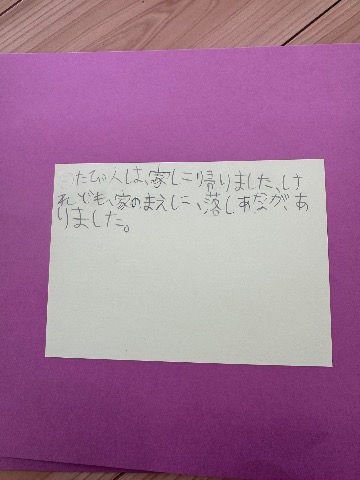 たび人は、家に帰りました、け
れども、家のまえに、落しあなが、あ
りました。